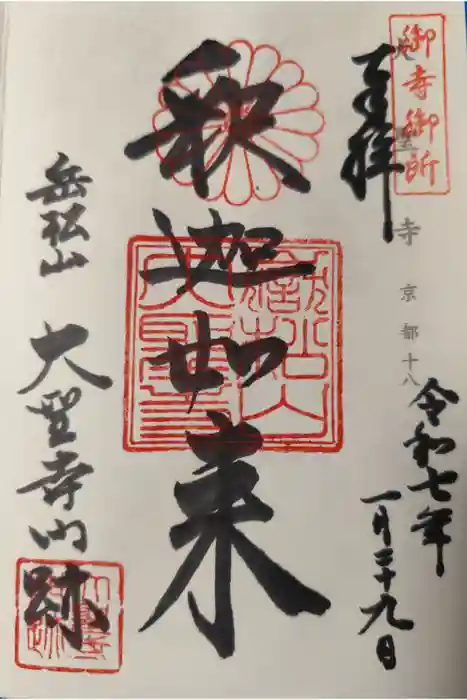 御寺御所
奉拝
大聖寺 京都十八
令和七年
一月二十九日
釈迦如来
岳松山 大聖寺門跡